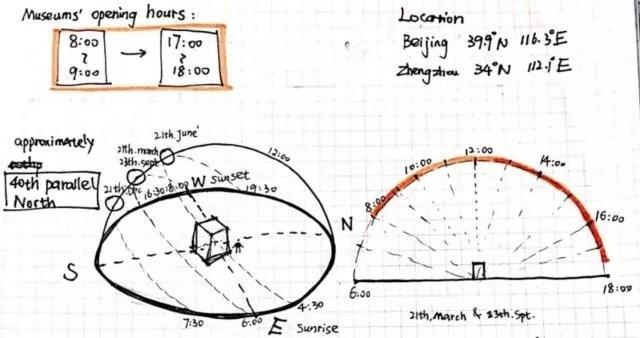 Museums' opening hours:
8:00
~
9:00
→
17:00
~
18:00
Location
Beijing 39.9°N 116.3°E
Zhengzhou 34°N 112.1°E
approximately
40th parallel
North
21th.June
21th.march
23th.sept
21th.Dec
12:00
16:30
18:00
W sunset
19:30
N
S
7:30
6:00
4:30
E Sunrise
6:00
8:00
10:00
12:00
14:00
16:00
18:00
21th.March & 23th.Spt.